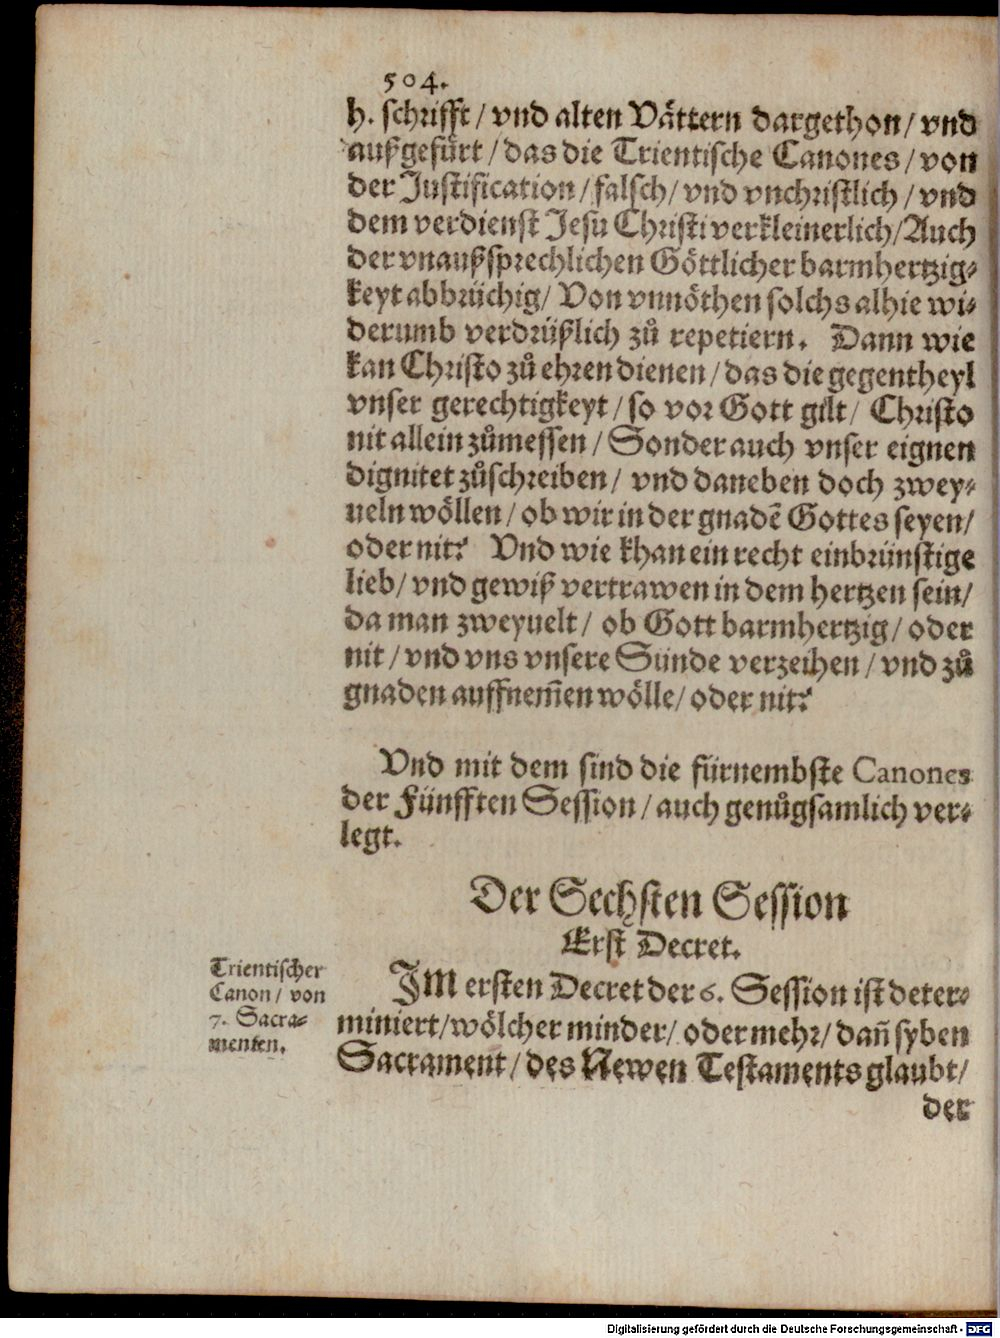 504.
h. schrifft / vnd alten Vättern dargethon / vnd
außgefürt / das die Trientische Canones / von
der Justification / falsch / vnd vnchristlich / vnd
dem verdienst Jesu Christi verkleinerlich / Auch
der vnaußsprechlichen Göttlicher barmhertzig-
keyt abbrüchig / Von vnnöthen solchs alhie wi-
derumb verdrüßlich zů repetiern. Dann wie
kan Christo zů ehren dienen / das die gegentheyl
vnser gerechtigkeyt / so vor Gott gilt / Christo
nit allein zůmessen / Sonder auch vnser eignen
dignitet zůschreiben / vnd daneben doch zwey-
ueln wöllen / ob wir in der gnadē Gottes seyen /
oder nit? Vnd wie khan ein recht einbrünstige
lieb / vnd gewiß vertrawen in dem hertzen sein /
da man zweyuelt / ob Gott barmhertzig / oder
nit / vnd vns vnsere Sünde verzeihen / vnd zů
gnaden auffnem̄en wölle / oder nit?
Vnd mit dem sind die fürnembste Canones
der Fünfften Session / auch genůgsamlich ver-
legt.
Der Sechsten Session
Erst Decret.
Trientischer
Canon / von
7. Sacra-
menten.
JM ersten Decret der 6. Session ist deter-
miniert / wölcher minder / oder mehr / dañ syben
Sacrament / des Newen Testaments glaubt /
der
Digitalisierung gefördert durch die Deutsche Forschungsgemeinschaft - DFG